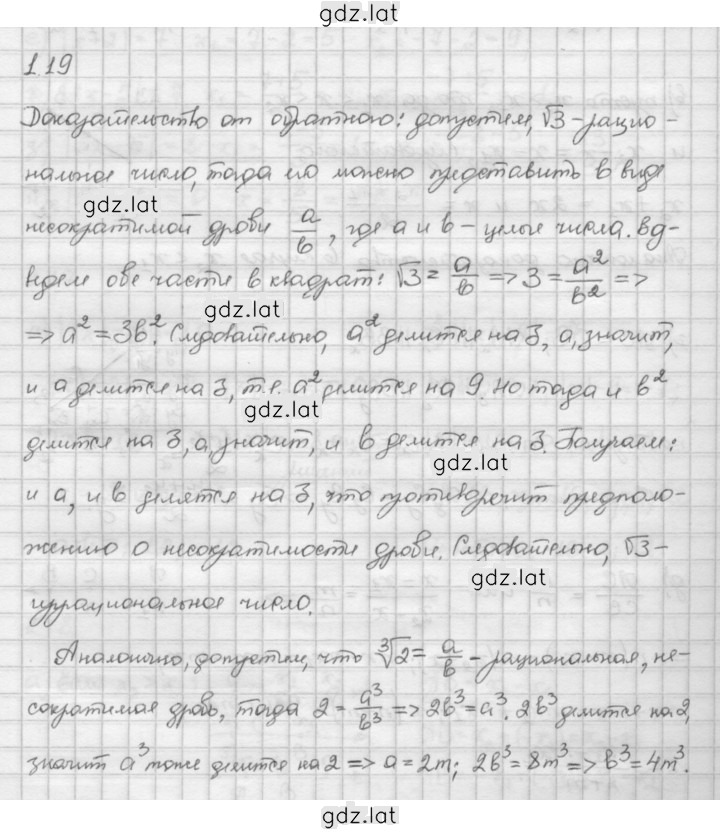 gdz.lat
1.19
Доказательство от обратного: допустим, √3 - рацио-
нальное число, тогда его можно представить в виде
gdz.lat
несократимой дроби a/b, где a и b - целые числа. Вд-
ведем обе части в квадрат: √3 = a/b => 3 = a²/b² =>
gdz.lat
=> a² = 3b². Следовательно, a² делится на 3, а, значит,
и a делится на 3, т.е. a² делится на 9. Но тогда и b²
gdz.lat
делится на 3, а, значит, и b делится на 3. Получаем:
gdz.lat
и a, и b делятся на 3, что противоречит предполо-
жению о несократимости дроби. Следовательно, √3 -
gdz.lat
иррациональное число.
Аналогично, допустим, что ∛2 = a/b - рациональная, не-
сократимая дробь, тогда 2 = a³/b³ => 2b³ = a³. 2b³ делится на 2,
gdz.lat
значит a³ тоже делится на 2 => a = 2m; 2b³ = 8m³ => b³ = 4m³.
gdz.lat